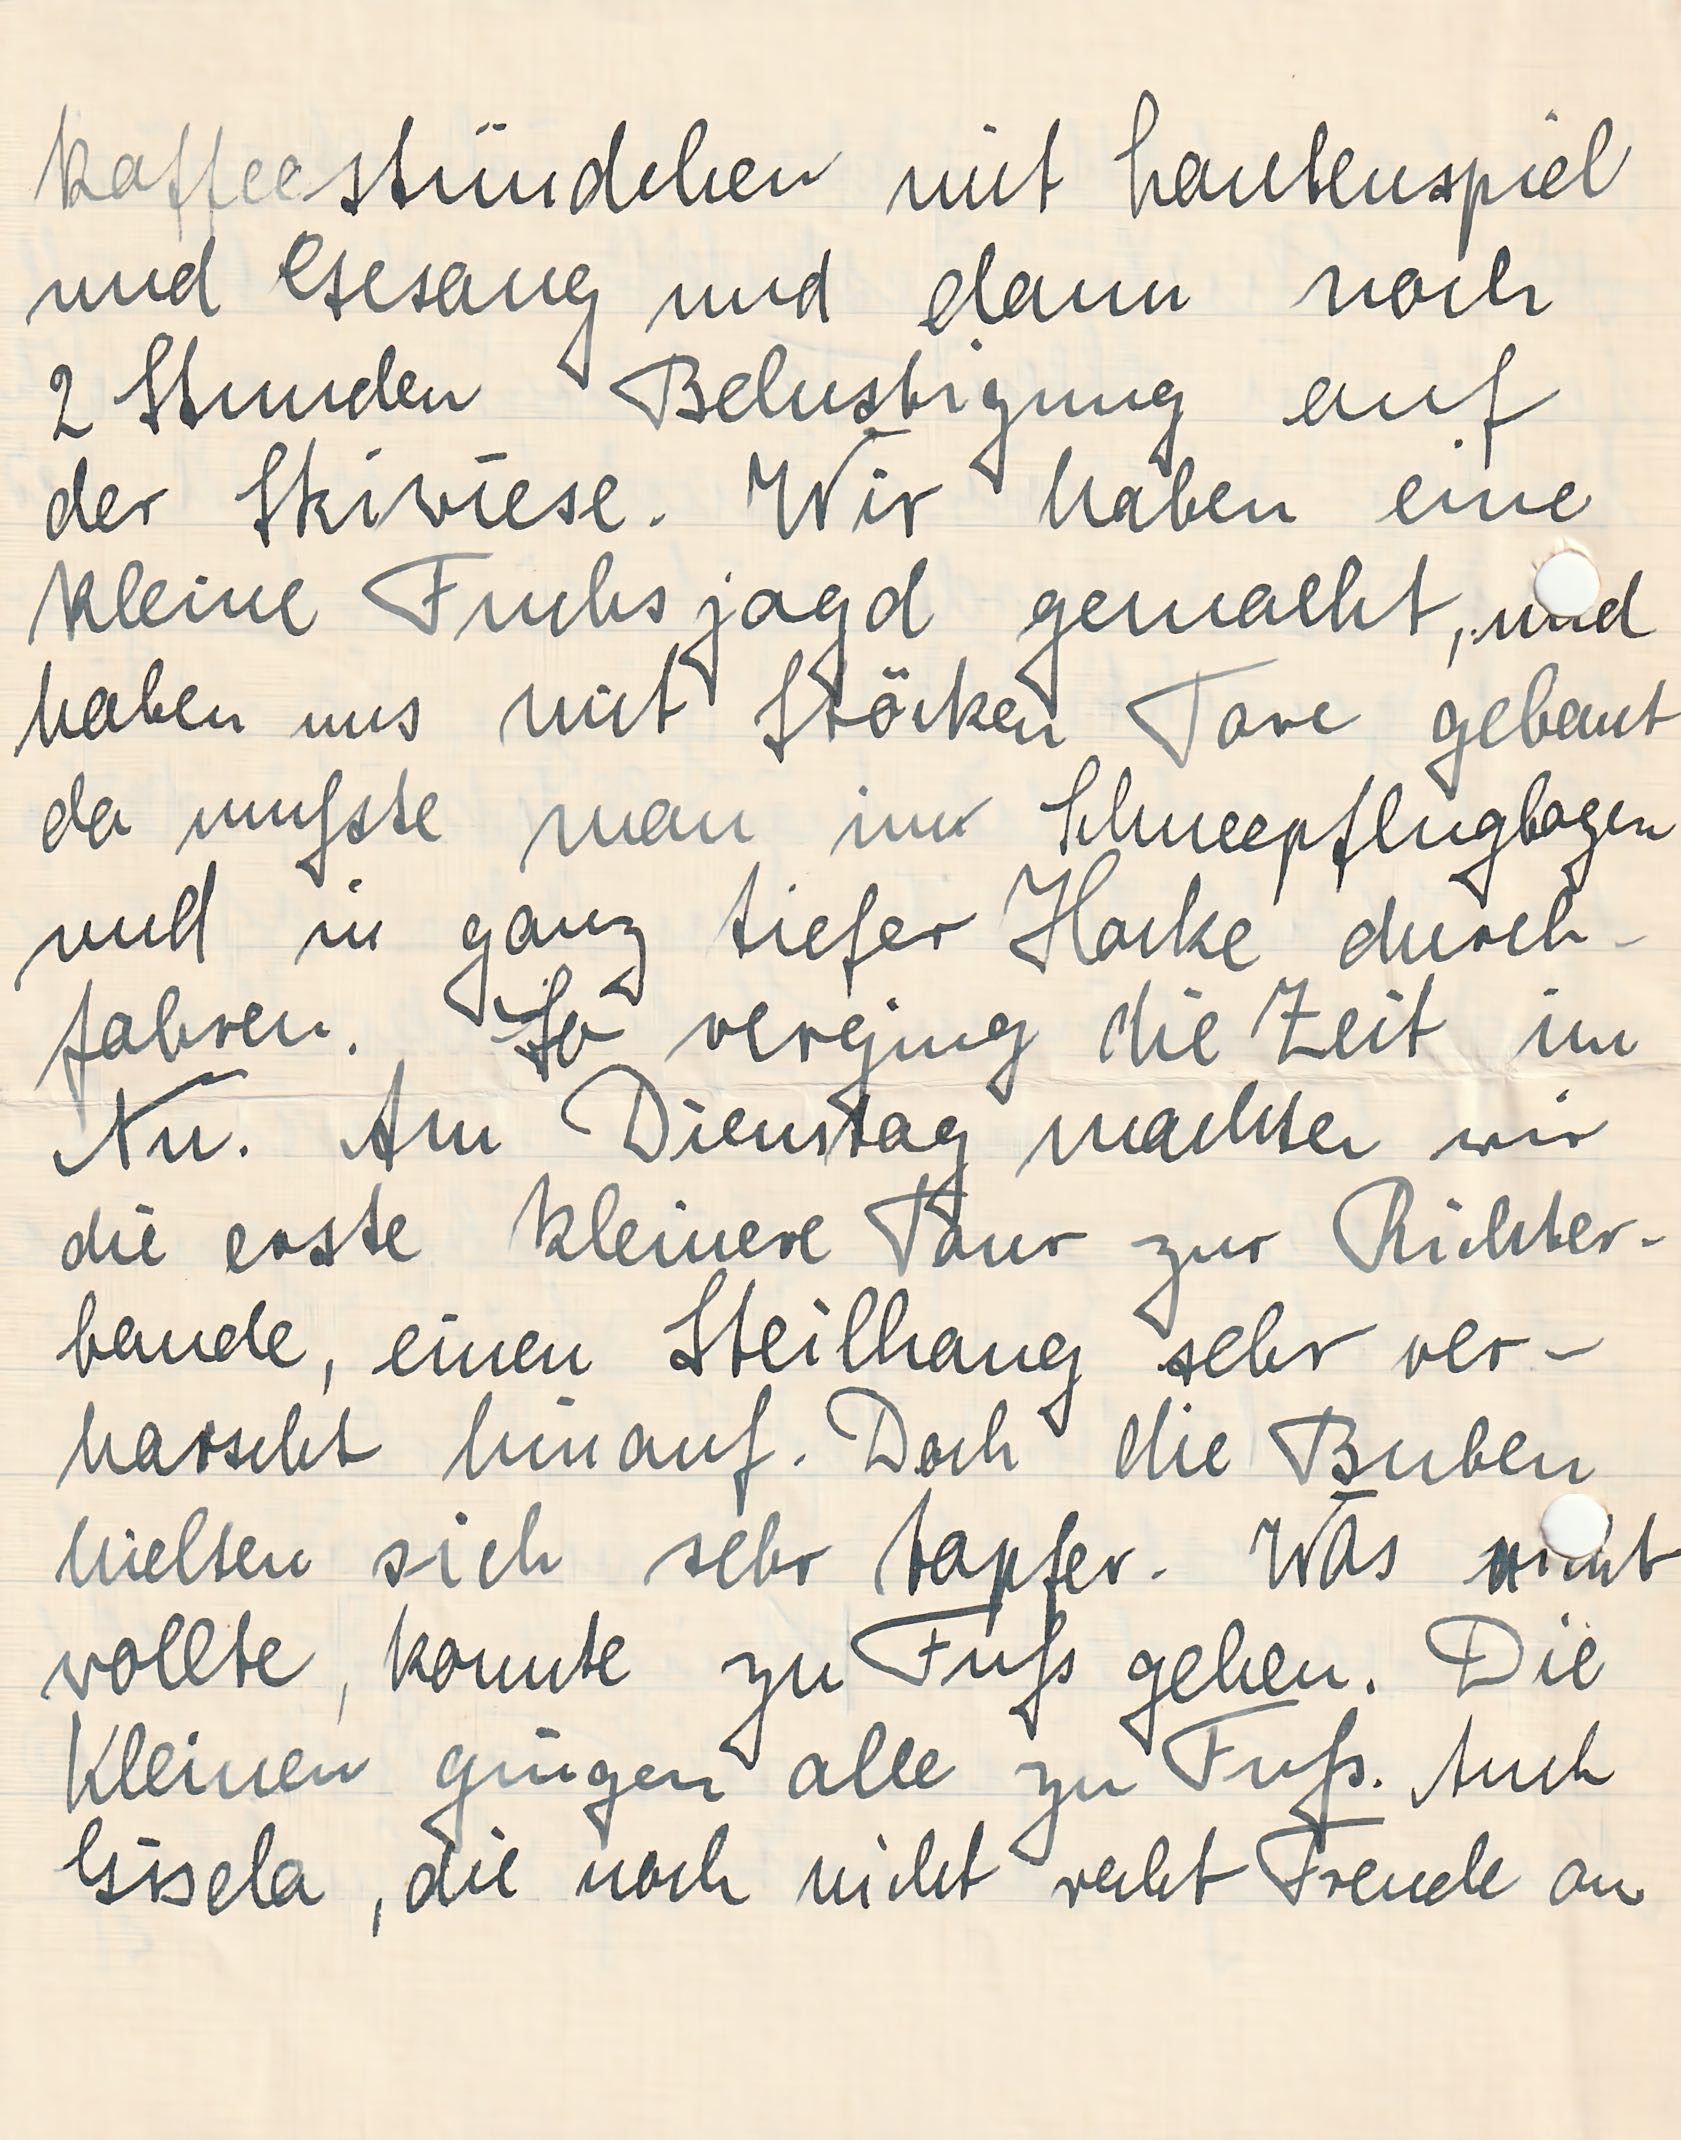 Kaffeestündchen mit Lautenspiel
und Gesang und dann noch
2 Stunden Belustigung auf
der Skiwiese. Wir haben eine
kleine Fuchsjagd gemacht, und
haben uns mit Stöcken Tore gebaut
da mußste man im Schneepflugbogen
und in ganz tiefer Hocke durch-
fahren. So verging die Zeit im
Nu. Am Dienstag machten wir
die erste kleinere Tour zur Richter-
baude, einen Steilhang sehr ver-
harscht hinauf. Doch die Buben
hielten sich sehr tapfer. Was nicht
wollte, konnte zu Fuß gehen. Die
Kleinen gingen alle zu Fuß. Auch
Gisela, die noch nicht recht Freude an